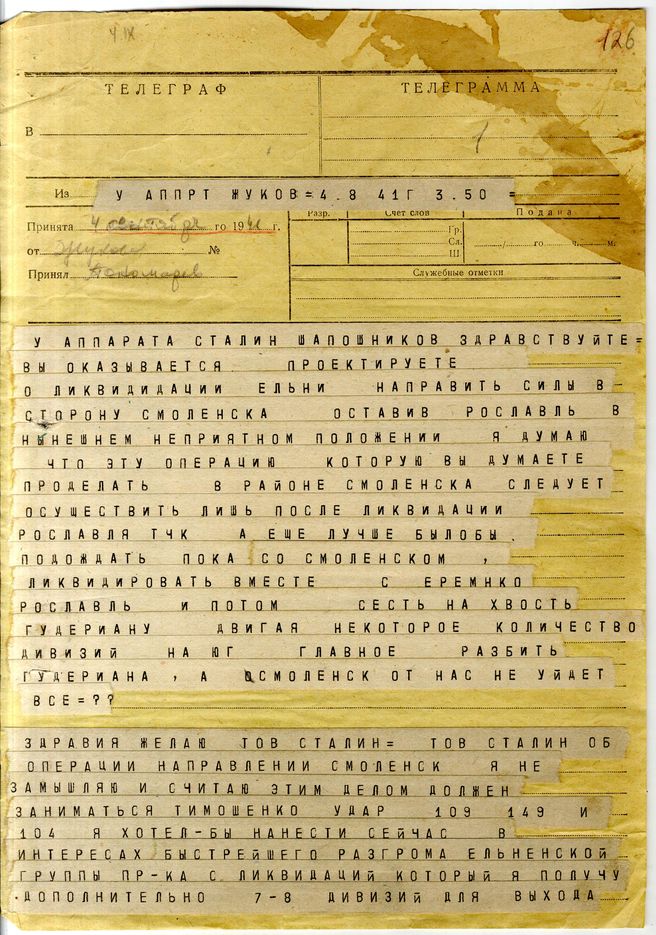 4 IX
126
ТЕЛЕГРАФ
ТЕЛЕГРАММА
В
1
Из У АППРТ ЖУКОВ=4.8 41Г 3.50 =
Принята 4 сентября го 1941 г.
Разр. Счет слов Подана
Гр.
Сл. го ч. м.
Ш
от Жукова №
Принял Пономарев
Служебные отметки
У АППАРАТА СТАЛИН ШАПОШНИКОВ ЗДРАВСТВУЙТЕ=
ВЫ ОКАЗЫВАЕТСЯ ПРОЕКТИРУЕТЕ
О ЛИКВИДИДАЦИИ ЕЛЬНИ НАПРАВИТЬ СИЛЫ В
СТОРОНУ СМОЛЕНСКА ОСТАВИВ РОСЛАВЛЬ В
НЫНЕШНЕМ НЕПРИЯТНОМ ПОЛОЖЕНИИ Я ДУМАЮ
ЧТО ЭТУ ОПЕРАЦИЮ КОТОРУЮ ВЫ ДУМАЕТЕ
ПРОДЕЛАТЬ В РАЙОНЕ СМОЛЕНСКА СЛЕДУЕТ
ОСУЩЕСТВИТЬ ЛИШЬ ПОСЛЕ ЛИКВИДАЦИИ
РОСЛАВЛЯ ТЧК А ЕЩЕ ЛУЧШЕ БЫЛОБЫ
ПОДОЖДАТЬ ПОКА СО СМОЛЕНСКОМ ,
ЛИКВИДИРОВАТЬ ВМЕСТЕ С ЕРЕМНКО
РОСЛАВЛЬ И ПОТОМ СЕСТЬ НА ХВОСТЬ
ГУДЕРИАНУ ДВИГАЯ НЕКОТОРОЕ КОЛИЧЕСТВО
ДИВИЗИЙ НА ЮГ ГЛАВНОЕ РАЗБИТЬ
ГУДЕРИАНА , А ОСМОЛЕНСК ОТ НАС НЕ УЙДЕТ
ВСЕ=??
ЗДРАВИЯ ЖЕЛАЮ ТОВ СТАЛИН= ТОВ СТАЛИН ОБ
ОПЕРАЦИИ НАПРАВЛЕНИИ СМОЛЕНСК Я НЕ
ЗАМЫШЛЯЮ И СЧИТАЮ ЭТИМ ДЕЛОМ ДОЛЖЕН
ЗАНИМАТЬСЯ ТИМОШЕНКО УДАР 109 149 И
104 Я ХОТЕЛ-БЫ НАНЕСТИ СЕЙЧАС В
ИНТЕРЕСАХ БЫСТРЕЙШЕГО РАЗГРОМА ЕЛЬНЕНСКОЙ
ГРУППЫ ПР-КА С ЛИКВИДАЦИЙ КОТОРЫЙ Я ПОЛУЧУ
ДОПОЛНИТЕЛЬНО 7-8 ДИВИЗИЙ ДЛЯ ВЫХОДА